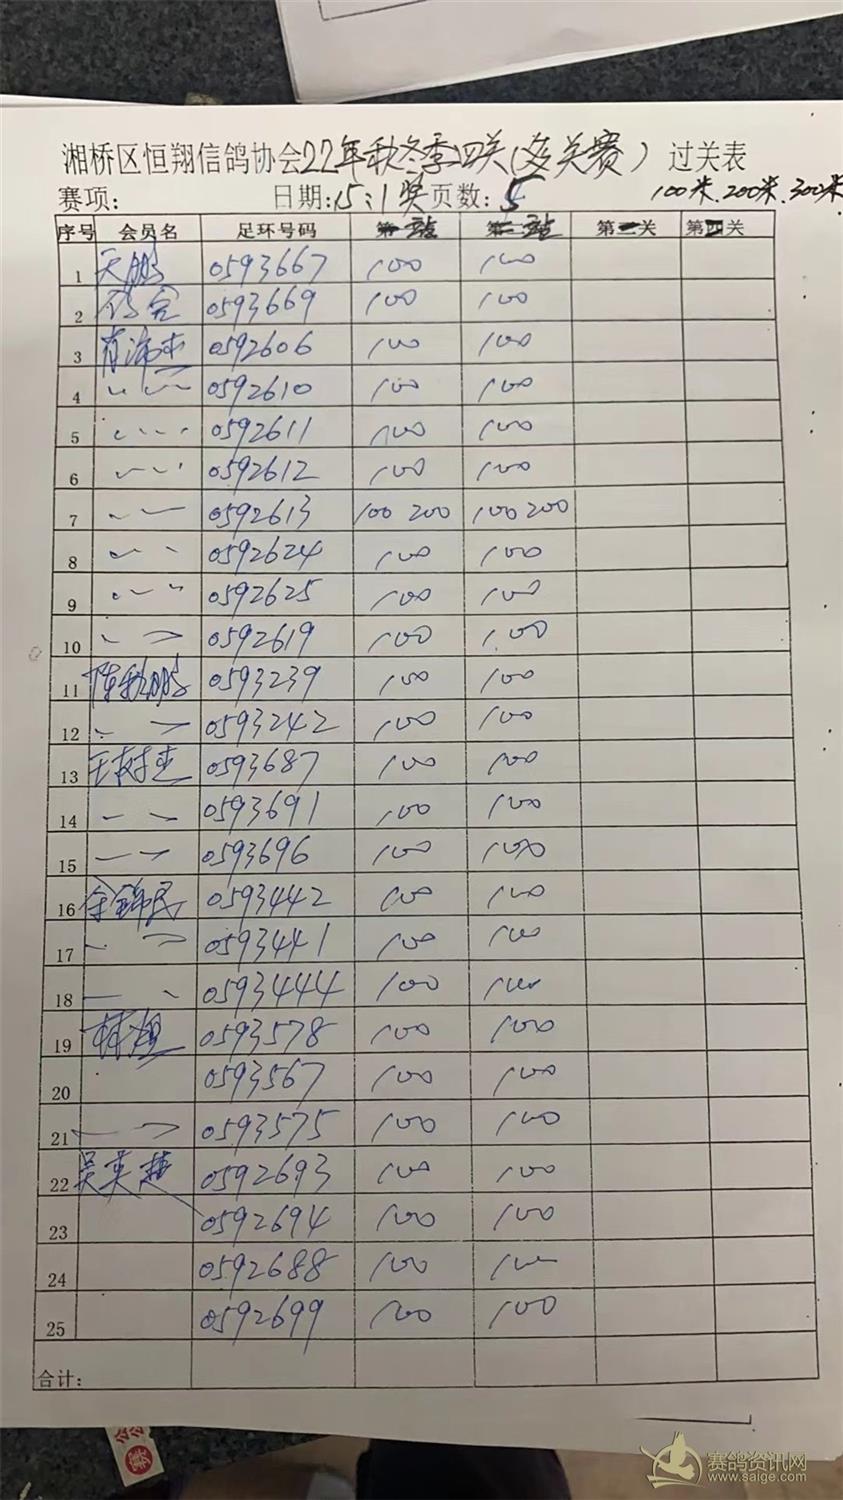 湘桥区恒翔信鸽协会22年秋冬季四关(多关赛)过关表
赛项: 日期:15:1奖 页数:5 100米.200米.300米
序号 会员名 足环号码 第一站 第二站 第三关 第四关
1 天鹏 0593667 100 100
2 0593669 100 100
3 0592606 100 100
4 0592610 100 100
5 0592611 100 100
6 0592612 100 100
7 0592613 100 200 100 200
8 0592624 100 100
9 0592625 100 100
10 0592619 100 100
11 陈秋鹏 0593239 100 100
12 0593242 100 100
13 王树杰 0593687 100 100
14 0593691 100 100
15 0593696 100 100
16 余锦民 0593442 100 100
17 0593441 100 100
18 0593444 100 100
19 0593578 100 100
20 0593567 100 100
21 0593575 100 100
22 吴奕越 0592693 100 100
23 0592694 100 100
24 0592688 100 100
25 0592699 100 100
合计:
赛鸽资讯网
www.saige.com